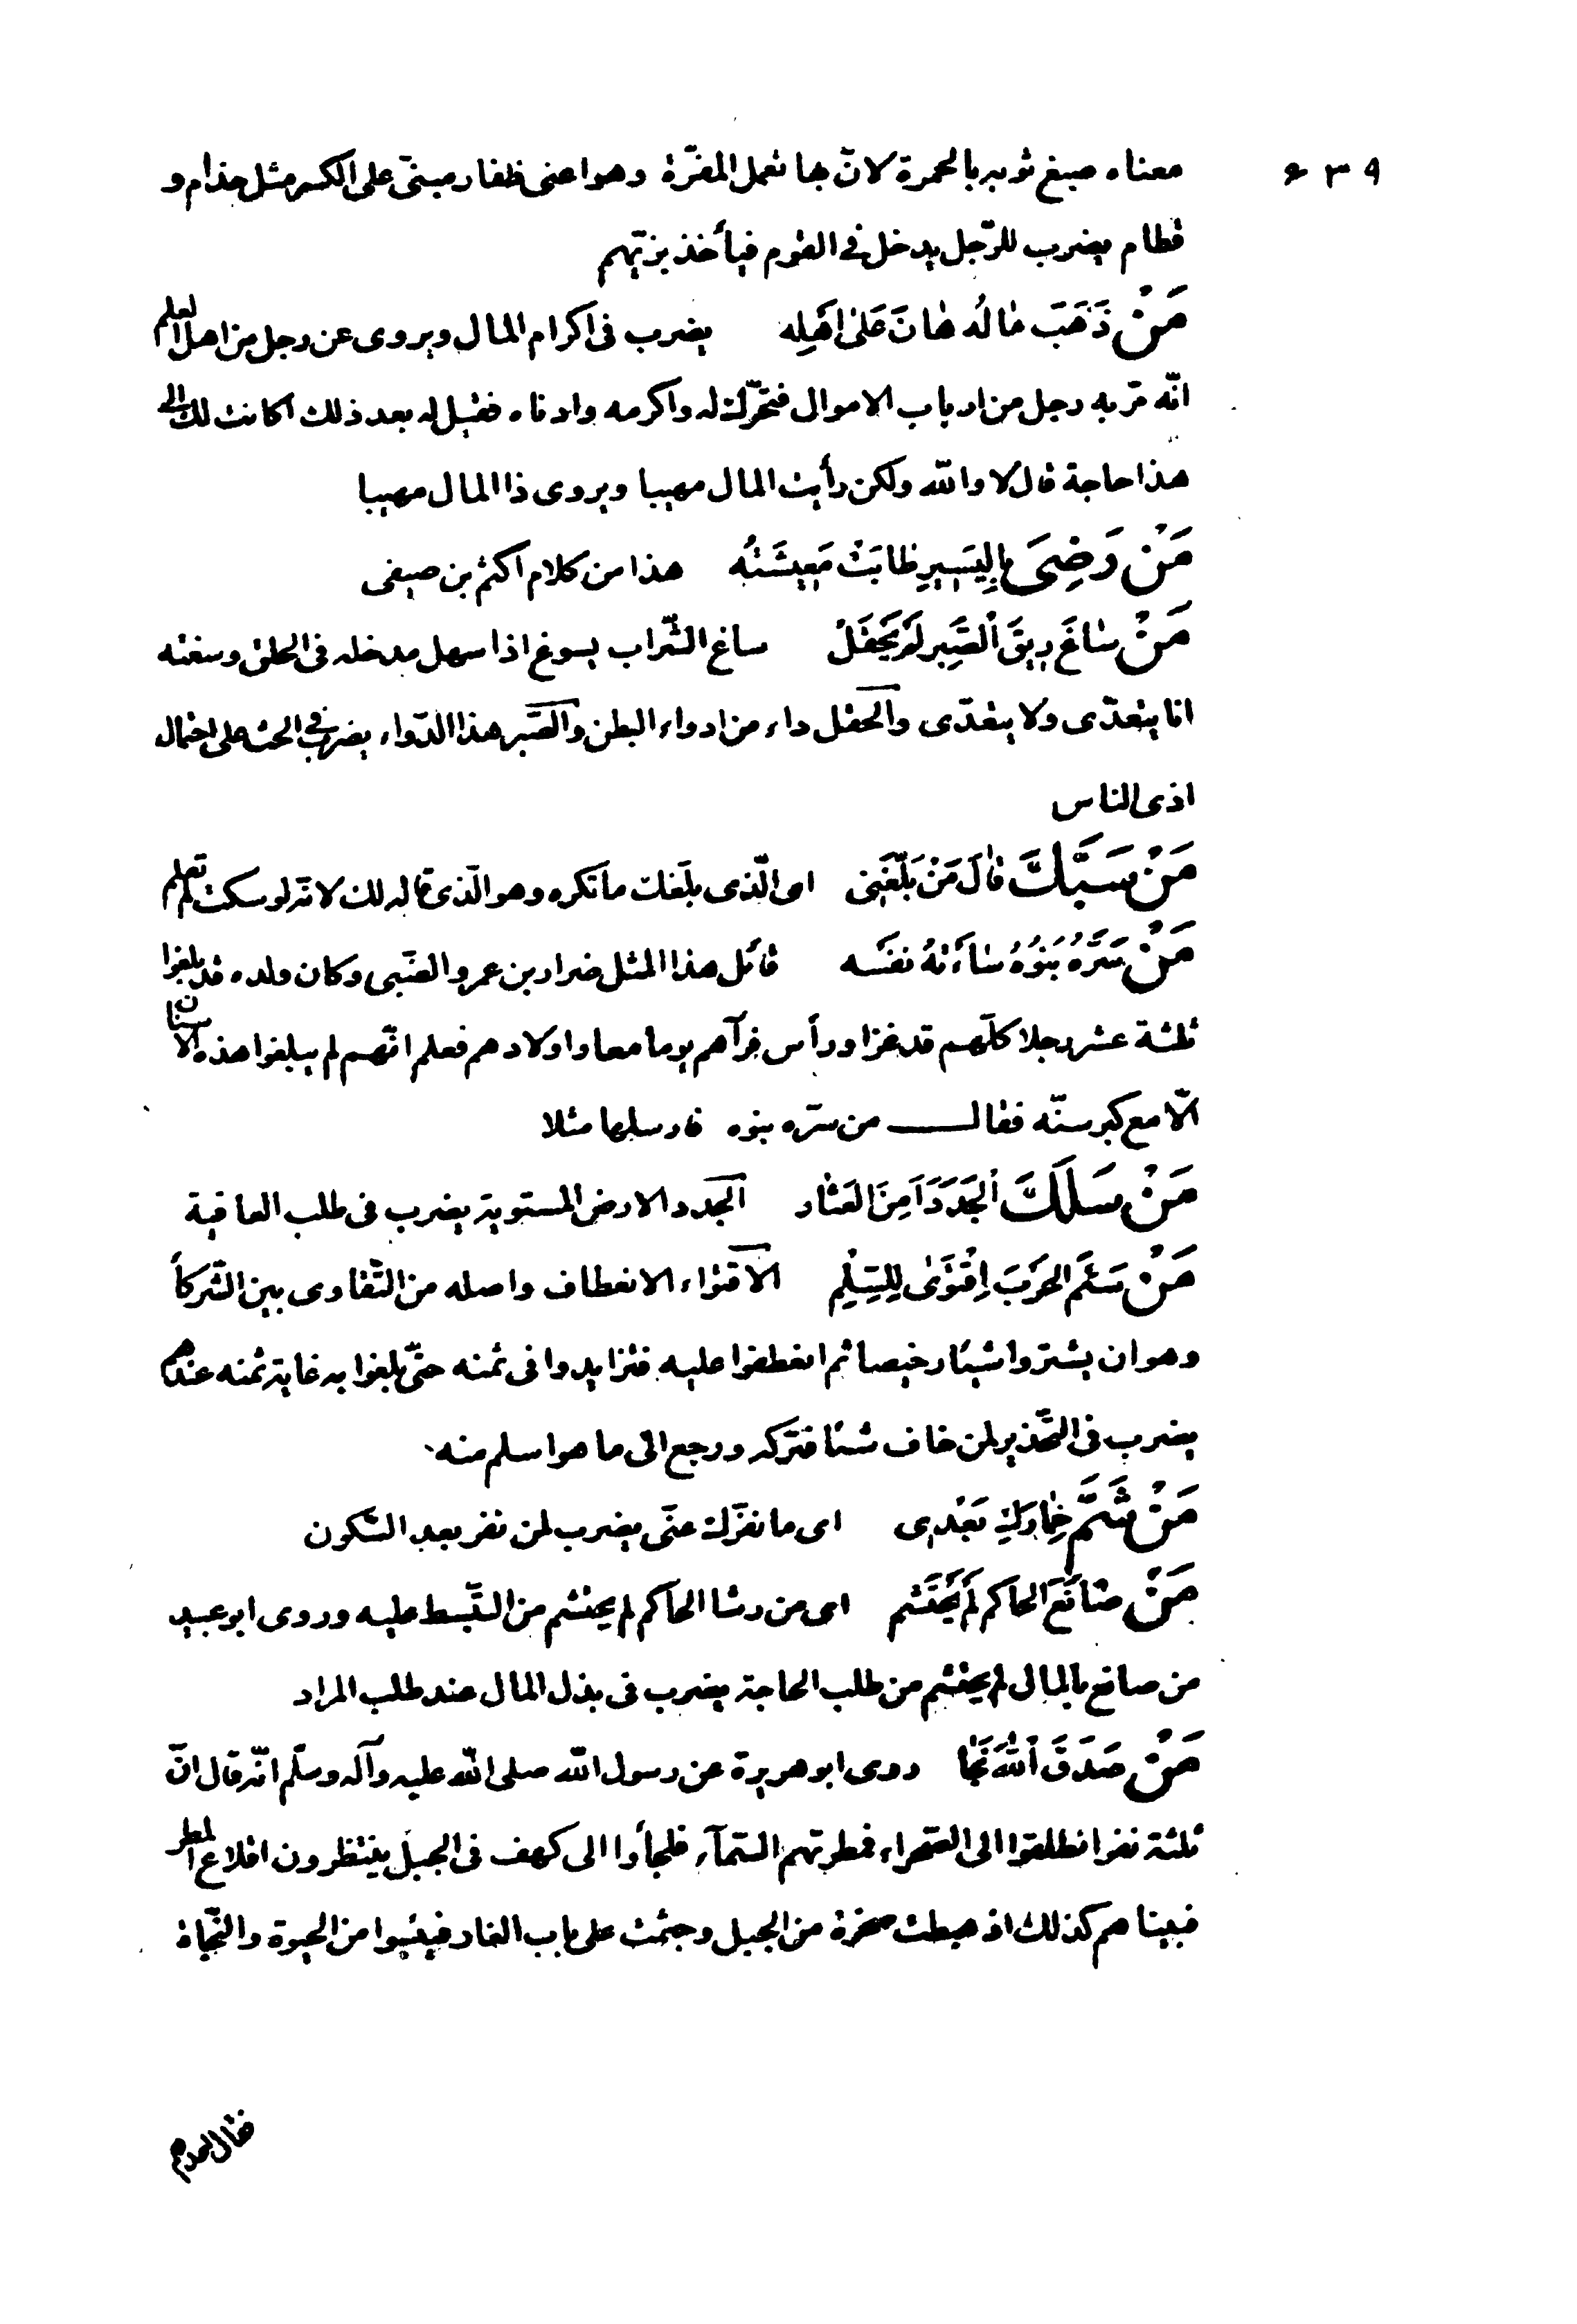 ۶۳۹
معناه صبغ ثوبه بالحمرة لانّ بها تعمل المغرة وهو اعنى ظفار مبنىّ على الكسر مثل حذام و
قطام يضرب للرّجل يدخل فى القوم فيأخذ بزيّهم
مَنْ ذَهَبَ مٰالُه هٰانَ عَلىٰ اَهْلِه يضرب فى اكرام المال ويروى عن رجل من اهل العلم
انّه مرّ به رجل من ارباب الاموال فتحرّك له واكرمه وادناه فقيل له بعد ذلك اكانت لك الى
هذا حاجة قال لا والله ولكن رأيت المال مهيبا ويروى ذا المال مهيبا
مَنْ رَضِىَ بِالْيَسِيرِ طٰابَتْ مَعِيشَتُه هذا من كلام اكثم بن صيفى
مَنْ سٰاغَ رِيقَ الْصَّبِرِ لَمْ يَحْقَلْ ساغ الشّراب يسوغ اذا سهل مدخله فى الحلق وسغته
انا يتعدّى ولا يتعدّى والحقل داء من ادواء البطن والصّبر هذا الدّواء يضرب فى الحث على احتمال
اذى الناس
مَنْ سَبَّكَ قٰالَ مَنْ بَلَّغَنِى اى الّذى بلّغك ما تكره وهو الّذى قاله لك لانّه لو سكت لم تعلم
مَنْ سَرَّهُ بَنُوهُ سٰاءَتْهُ نَفْسُه قائل هذا المثل ضرار بن عمرو الضّبى وكان ولده قد بلغوا
ثلثة عشر رجلا كلّهم قد غزا ورأس فرآهم يوما معا واولادهم فعلم انّهم لم يبلغوا هذه الاسنان
الّا مع كبر سنّه فقال من سرّه بنوه فارسلها مثلا
مَنْ سَلَكَ الْجَدَدَ اَمِنَ العَثٰار الجدد الارض المستوية يضرب فى طلب العافية
مَنْ سَئَمَ الحَرْبَ اِقْتَوىٰ لِلسِّلْمِ الاقتواء الانعطاف واصله من التّقاوى بين الشّركأ
وهو ان يشتروا شيئا رخيصا ثم انعطفوا عليه فتزايدوا فى ثمنه حتّى بلغوا به غاية ثمنه عندهم
يضرب فى التّحذير لمن خاف شيئا فتركه ورجع الى ما هو اسلم منه
مَنْ شَمَّ خِمٰارَكِ بَعْدِى اى ما نفرّك عنّى يضرب لمن نفر بعد السّكون
مَنْ صٰانَعَ الحاكم لَمْ يَحْتَشِم اى من رشا الحاكم لم يحتشم من التّبسّط عليه وروى ابو عبيد
من صانع بالمال لم يحتشم من طلب الحاجة يضرب فى بذل المال عند طلب المراد
مَنْ صَدَقَ اللهَ نَجٰا روى ابو هريرة عن رسول الله صلى الله عليه وآله وسلّم انّه قال انّ
ثلثة نفر انطلقوا الى الصّحراء فمطرتهم السّمآء فلجأوا الى كهف فى الجبل ينتظرون اقلاع المطر
فبينا هم كذلك اذ هبطت صخرة من الجبل وجثمت على باب الغار فيئسوا من الحيوة والنّجاة
فقال احدهم